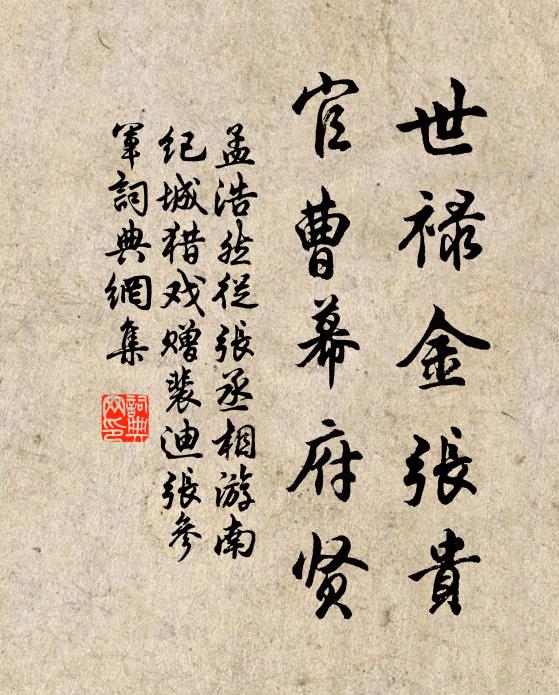 世禄金張貴
官曹幕府贤
孟浩然從張丞相游南
纪城猎戏赠裴迪張參
軍詞典網集
詞典網印